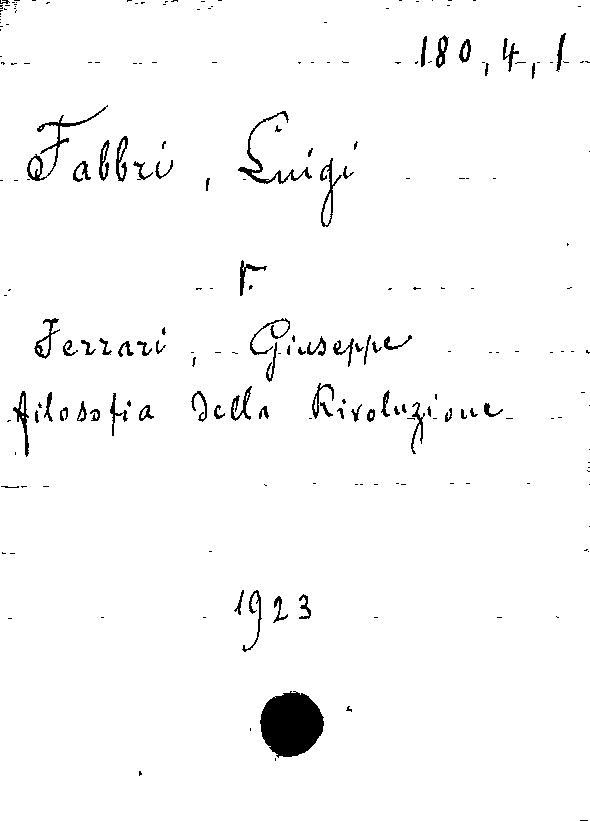 180,4,1
Fabbri, Luigi
v.
Ferrari, Giuseppe
filosofia della Rivoluzione
1923